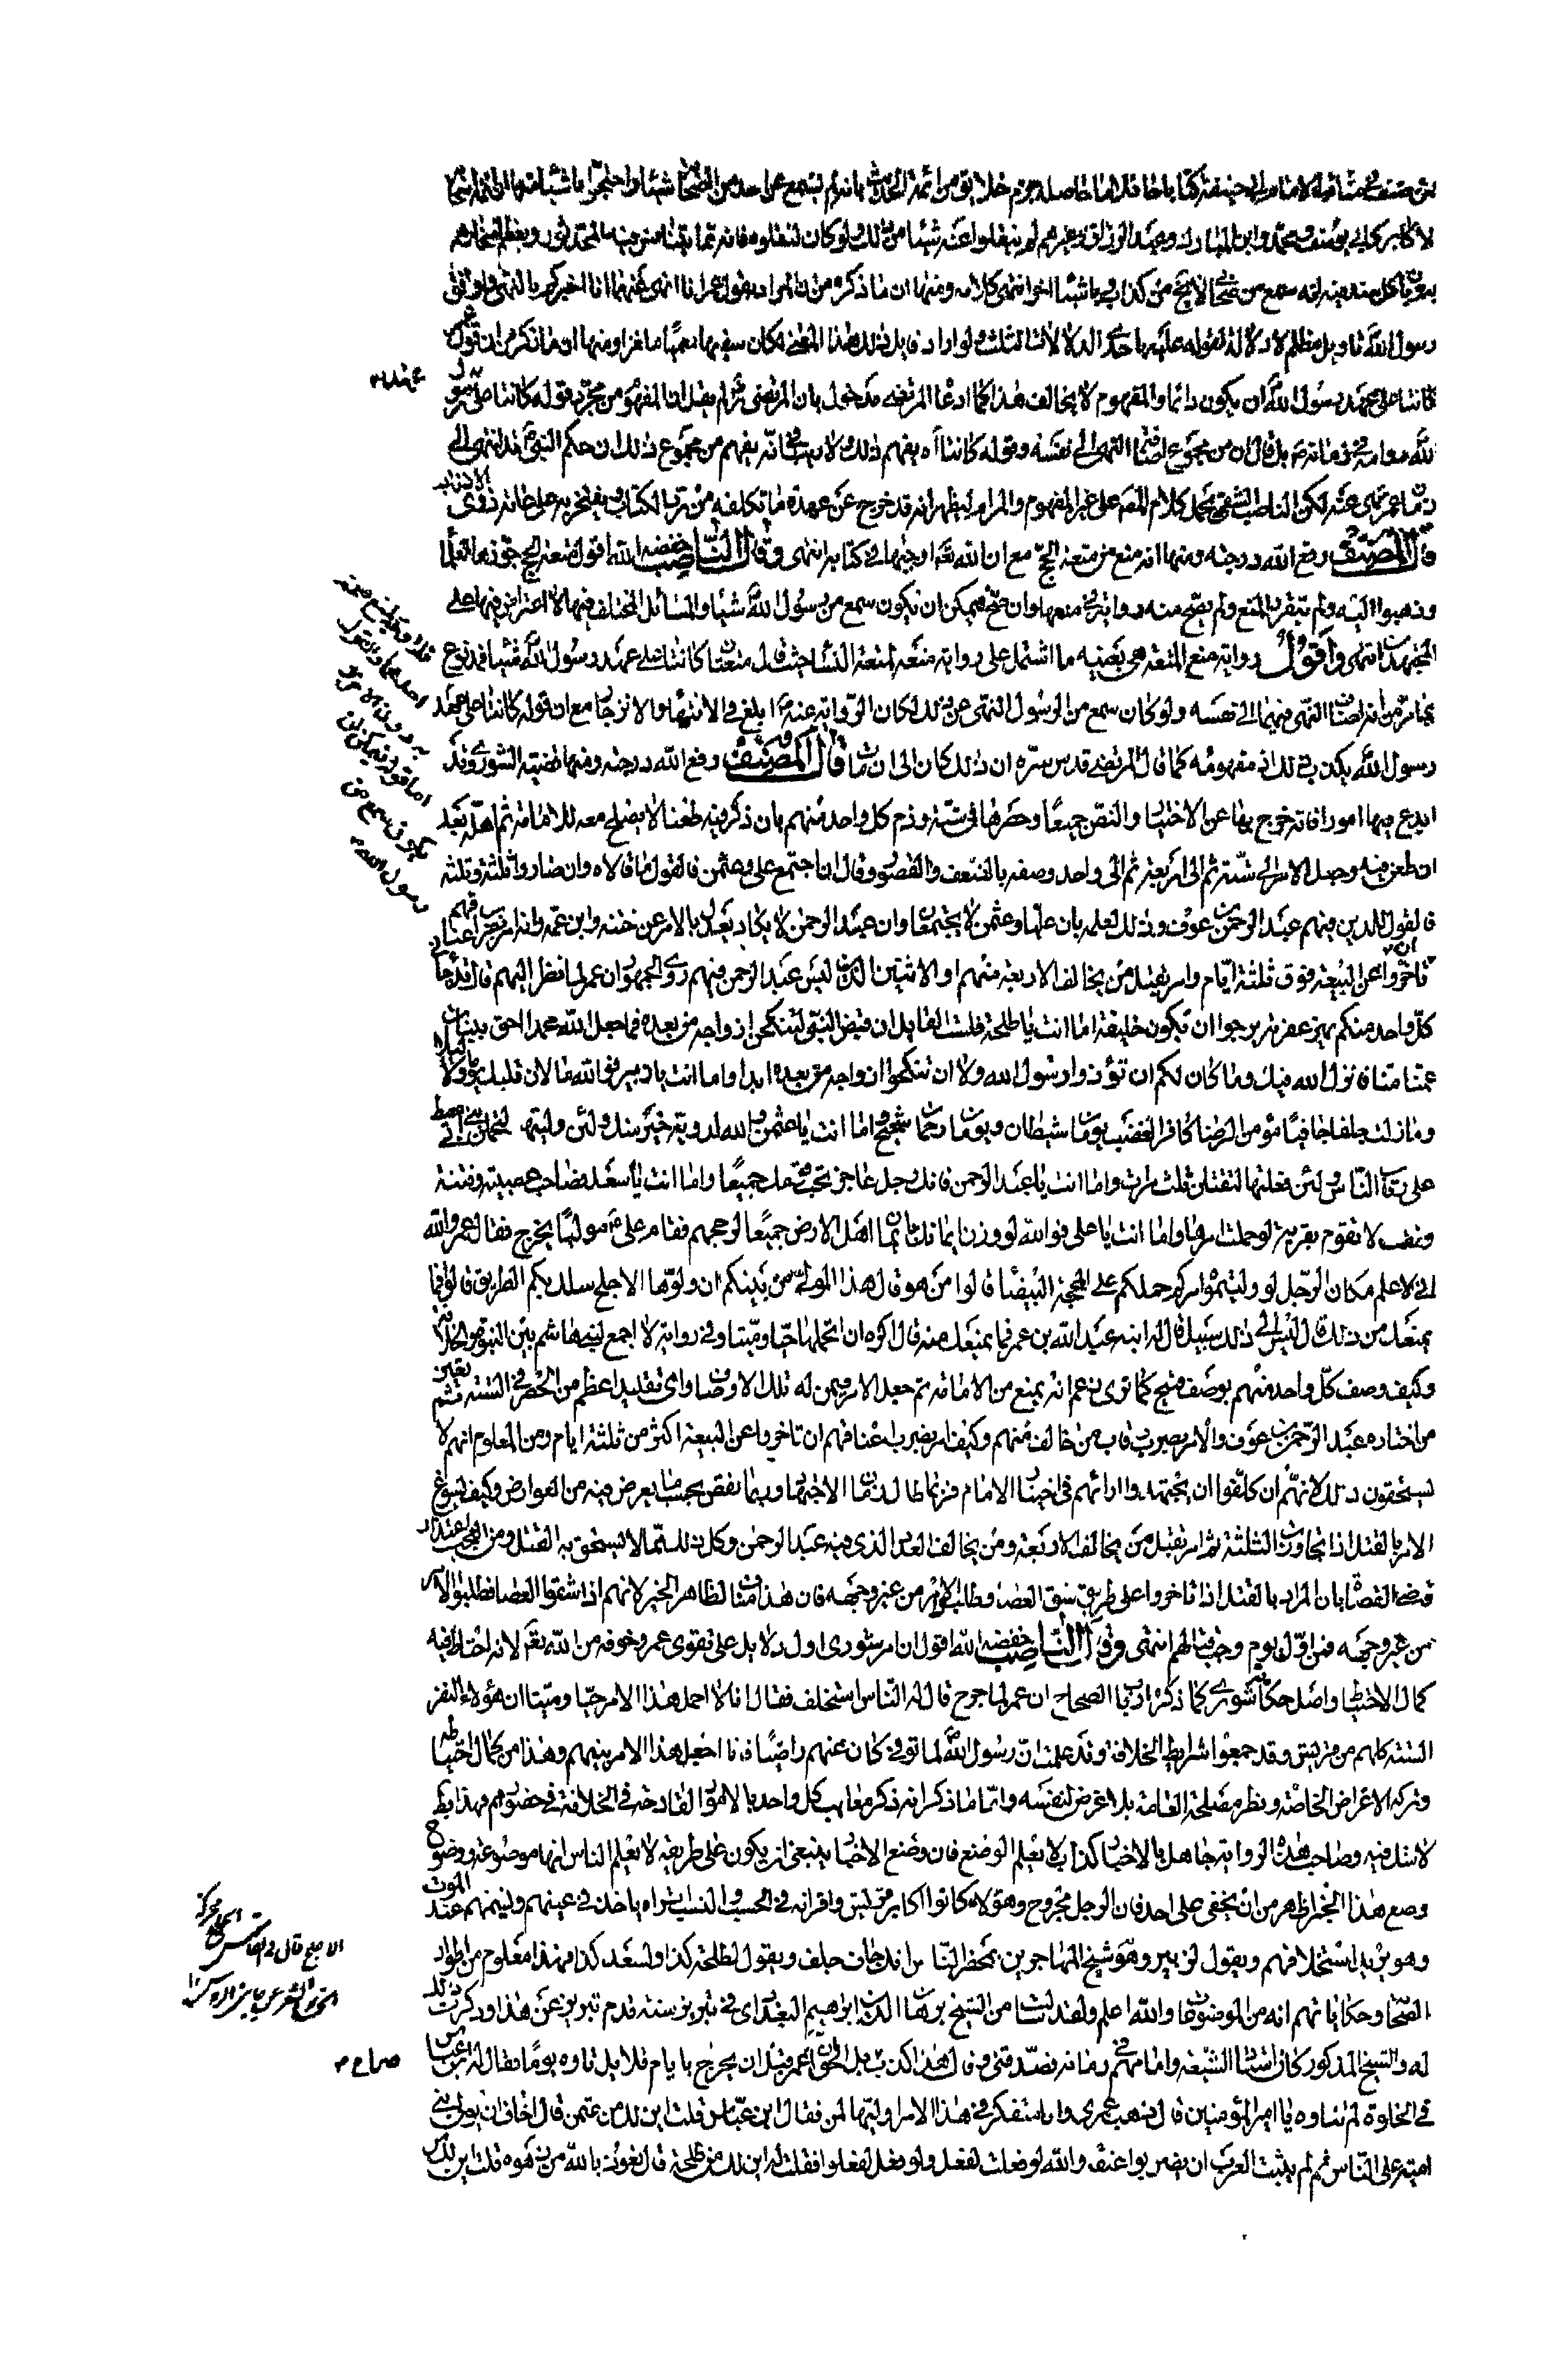 لا كابر كابي يوسف ومحمد وابن المبارك وعبد الرزاق وغيرهم لم ينقلوا عنه شيئا من ذلك ولو كان لنقلوه فانه مما
رسول الله تاويل مظلم لا دلالة لقوله عليه باحدى الدلالات الثلث ولو اراد قايل بذلك هذا المعنى لكان سفيها ومنها ان ما ذكر من ان قول عمر
كانتا على عهد رسول الله ان يكون دائما والمفهوم لا يخالف هذا كما ادعاه المرتضى مدخول بان المرتضى لم يقل ان المفهوم من مجرد قوله كانتا على عهد رسول
الله دوامه في زمانه بل قال ان من مجموع اضافة النهى الى نفسه وقوله كانتا اه يفهم ذلك ولا ريب في انه يفهم من مجموع ذلك ان حكم النبي
زمان عمر نهى عنه لكن الناصب الشقي يحمل كلام المصنف على غير المفهوم والمرام ليظهر انه قد خرج عن عهدة ما تكلفه من رد الكتاب ويفتخر به على خالته ذوى الاذناب
قال المصنف رفع الله درجته ومنها انه منع من متعة الحج مع ان الله تعالى اوجبها في كتابه انتهى وقال الناصب خفضه الله اقول متعة الحج جوزها العلماء
وذهبوا اليه ولم يتقرر المنع ولم يصح منه رواية في منعها وان صح فيمكن ان يكون سمع من رسول الله شيئا والمسائل المختلف فيها لا اعتراض فيها على
المجتهد انتهى واقول رواية منع المتعة هي بعينه ما اشتمل على رواية منعه لمتعة النساء حيث قال متعتان كانتا على عهد رسول الله
من انه اضاف النهى فيهما الى نفسه ولو كان سمع من الرسول النهى عن ذلك لكان الرواية عنه ابلغ في الانتهاء والانزجار مع ان قوله كانتا على عهد
رسول الله يكذب ذلك اذ مفهومه كما قال المرتضى قدس سره ان ذلك كان الى ان مات قال المصنف رفع الله درجته ومنها قضية الشورى وقد
ابدع فيها امورا فانه خرج بها عن الاختيار والنص جميعا وحصرها في ستة وذم كل واحد منهم بان ذكر فيه طعنا لا يصلح معه للامامة ثم اهله بعد
ان طعن فيه وجعل الامر الى ستة ثم الى اربعة ثم الى واحد وصفه بالضعف والقصور وقال ان اجتمع على وعثمن فالقول ما قالاه وان صاروا ثلثة وثلثة
فالقول للذين فيهم عبد الرحمن بن عوف وذلك لعلمه بان عليا وعثمن لا يجتمعان وان عبد الرحمن لا يكاد يعدل بالامر عن ختنه وابن عمه وانه امر بضرب اعناقهم
ان تاخروا عن البيعة فوق ثلثة ايام وامر بقتل من يخالف الاربعة منهم او الاثنين الذين ليس عبد الرحمن فيهم روى الجمهور ان عمر لما نظر اليهم قال قد جاءنى
كل واحد منكم يهز عفريته يرجو ان يكون خليفة اما انت يا طلحة فلست القايل ان قبض النبي لننكحن ازواجه من بعده فما جعل الله محمدا احق ببنات
عمنا منا فانزل الله فيك وما كان لكم ان تؤذوا رسول الله ولا ان تنكحوا ازواجه من بعده ابدا واما انت يا زبير فوالله ما لان قلبك يوما ولا ليلا
وما زلت جلفا جافيا مؤمن الرضا كافر الغضب يوما شيطان ويوما رحمان شحيح واما انت يا عثمن والله لروثة خير منك ولئن وليتها لتحملن بني ابي معيط
على رقاب الناس ولئن فعلتها لتقتلن ثلث مرات واما انت يا عبد الرحمن فانك رجل عاجز تحب قومك جميعا واما انت يا سعد فصاحب عصبية وفتنة
ومقنب لا تقوم بقرية لو حملت امرها واما انت يا على فوالله لو وزن ايمانك بايمان اهل الارض جميعا لرجحهم فقام على موليا يخرج فقال عمر والله
انى لاعلم مكان الرجل لو وليتموه امركم حملكم على المحجة البيضاء قالوا من هو قال هذا المولى من بينكم ان ولوها الاجلح سلك بكم الطريق قالوا فما
يمنعك من ذلك قال ليس الى ذلك سبيل قال له ابنه عبد الله بن عمر فما يمنعك منه قال اكره ان اتحملها حيا وميتا وفى رواية لا اجمع لبني هاشم بين النبوة والخلافة
وكيف وصف كل واحد منهم بوصف قبيح كما ترى زعم انه يمنع من الامامة ثم جعل الامر فيمن له تلك الاوصاف واى تقليد اعظم من الحصر في الستة ثم تعيين
من اختاره عبد الرحمن بن عوف والامر بضرب رقاب من خالف منهم وكيف امر بضرب اعناقهم ان تاخروا عن البيعة اكثر من ثلثة ايام ومن المعلوم انهم لا
يستحقون ذلك لانهم ان كلفوا ان يجتهدوا ارائهم في اختيار الامام فربما طال زمان الاجتهاد وربما نقص بحسب ما يعرض فيه من العوارض وكيف يسوغ
الامر بالقتل اذا تجاوز الثلثة ثم امر بقتل من يخالف الاربعة ومن يخالف العدد الذى فيه عبد الرحمن وكل ذلك مما لا يستحق به القتل ومن العجب اعتذار
قاضى القضاة بان المراد بالقتل اذا تاخروا على طريق شق العصا وطلب الامر من غير وجهه فان هذا مناف لظاهر الخبر لانهم اذا شقوا العصا وطلبوا الامر
من غير وجهه فمن اول يوم وجب قتالهم انتهى وقال الناصب خفضه الله اقول ان امر شورى اول دلايل على تقوى عمر وخوفه من الله تعالى لانه احتاط فيه
كمال الاحتياط واصل حكاية شورى كما ذكره ارباب الصحاح ان عمر لما جرح قال له الناس استخلف فقال انا لا احمل هذا الامر حيا وميتا ان هؤلاء النفر
الستة كلهم من قريش وقد جمعوا شرايط الخلافة وقد علمت ان رسول الله لما توفى كان عنهم راضيا فانا اجعل هذا الامر بينهم وهذا من كمال احتياطه
وتركه الاغراض الخاصة ونظر مصلحة العامة بلا غرض لنفسه واما ما ذكر انه ذكر معايب كل واحد بالامور القادحة في الخلافة في حضورهم فهذا باطل
لا شك فيه وصاحب هذه الرواية جاهل بالاخبار كذاب لا يعلم الوضع فان وضع الاخبار ينبغى ان يكون على طريقة لا يعلم الناس انها موضوعة ووضوح
وضع هذا الخبر اظهر من ان يخفى على احد فان الرجل مجروح وهؤلاء كانوا اكابر قريش واقرانه في الحسب والنسب اتراه ياخذ في عيبهم ولينهم عند الموت
وهو يريد استخلافهم ويقول لزبير وهو شيخ المهاجرين بمحضر الناس انك جاف جلف ويقول لطلحة كذا ولسعد كذا فهذا معلوم من اطوار
الصحابة وحكاياتهم انه من الموضوعات والله اعلم ولقد سالت من الشيخ برهان الدين ابراهيم البغدادى في تبريز سنة قدم تبريز عن هذا وذكرت ذلك
له والشيخ المذكور كان استاذ الشيعة وامامهم في زمانه فصدقنى وقال هذا كذب بل الحق ان عمر قبل ان يجرح بايام قلايل تاوه يوما فقال له ابن عباس
في الخلوة لم تتاوه يا امير المؤمنين قال ذهب عمرى وانا متفكر في هذا الامر اوليها لمن فقال ابن عباس قلت اين لك من عثمن قال اخاف ان يولى بنى
امية على الناس ثم لم يلبث العرب ان يضربوا عنقه والله لو فعلت لفعل ولو فعل لفعلوا فقلت له اين لك من طلحة قال نعوذ بالله من زهوه قلت اين لك